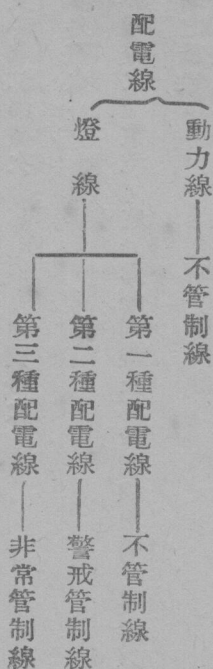 配電線
動力線
不管制線
燈線
第一種配電線
不管制線
第二種配電線
警戒管制線
第三種配電線
非常管制線